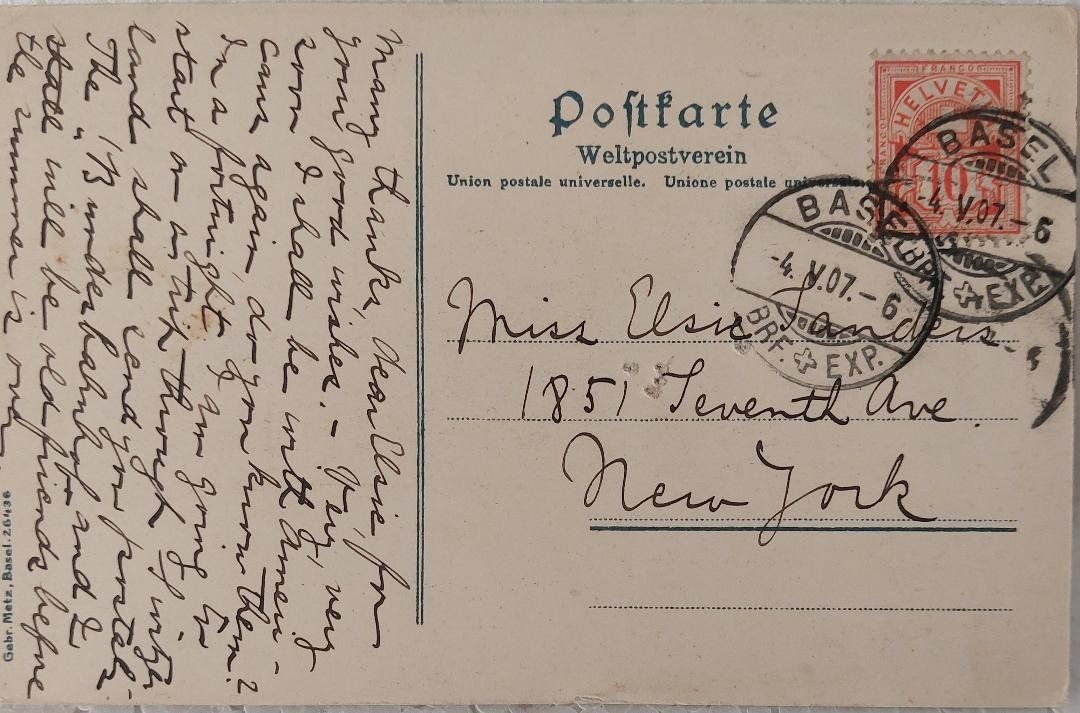 Postkarte
Weltpostverein
Union postale universelle. Unione postale universale.
HELVETIA
FRANCO
10
BASEL
-4.V.07.-6
BRF. EXP.
BASEL
-4.V.07.-6
BRF. EXP.
Many thanks, dear Elsie, for
your good wishes. – Very, very
soon I shall be with Ameri-
cans again, do you know them?
In a fortnight I am going to
start on trip through
land shall send you postals.
The "Bundesbahnhof and I
shall will be old friends before
the summer is over.
Miss Elsie Sanders.
1851 Seventh Ave
New York
Gebr. Metz, Basel. 26436